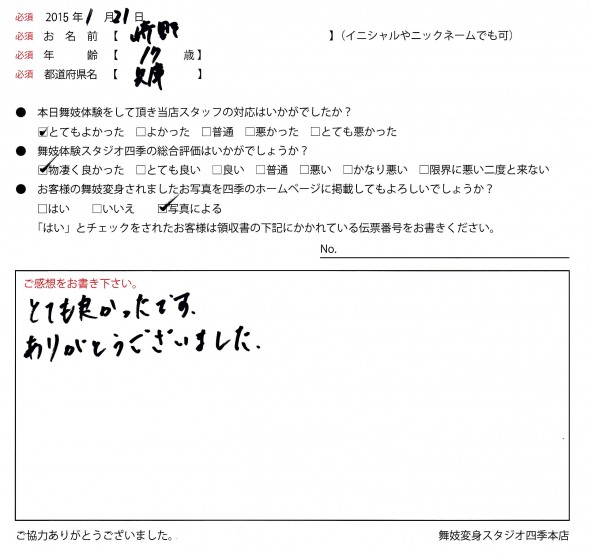 必須 2015年1月21日
必須 お名前【 】(イニシャルやニックネームでも可)
必須 年齢【 17 歳】
必須 都道府県名【 兵庫 】
● 本日舞妓体験をして頂き当店スタッフの対応はいかがでしたか?
☑とてもよかった □よかった □普通 □悪かった □とても悪かった
● 舞妓体験スタジオ四季の総合評価はいかがでしょうか?
☑物凄く良かった □とても良い □良い □普通 □悪い □かなり悪い □限界に悪い二度と来ない
● お客様の舞妓変身されましたお写真を四季のホームページに掲載してもよろしいでしょうか?
□はい □いいえ ☑写真による
「はい」とチェックをされたお客様は領収書の下記にかかれている伝票番号をお書きください。
No.
ご感想をお書き下さい。
とても良かったです.
ありがとうございました.
ご協力ありがとうございました。 舞妓変身スタジオ四季本店